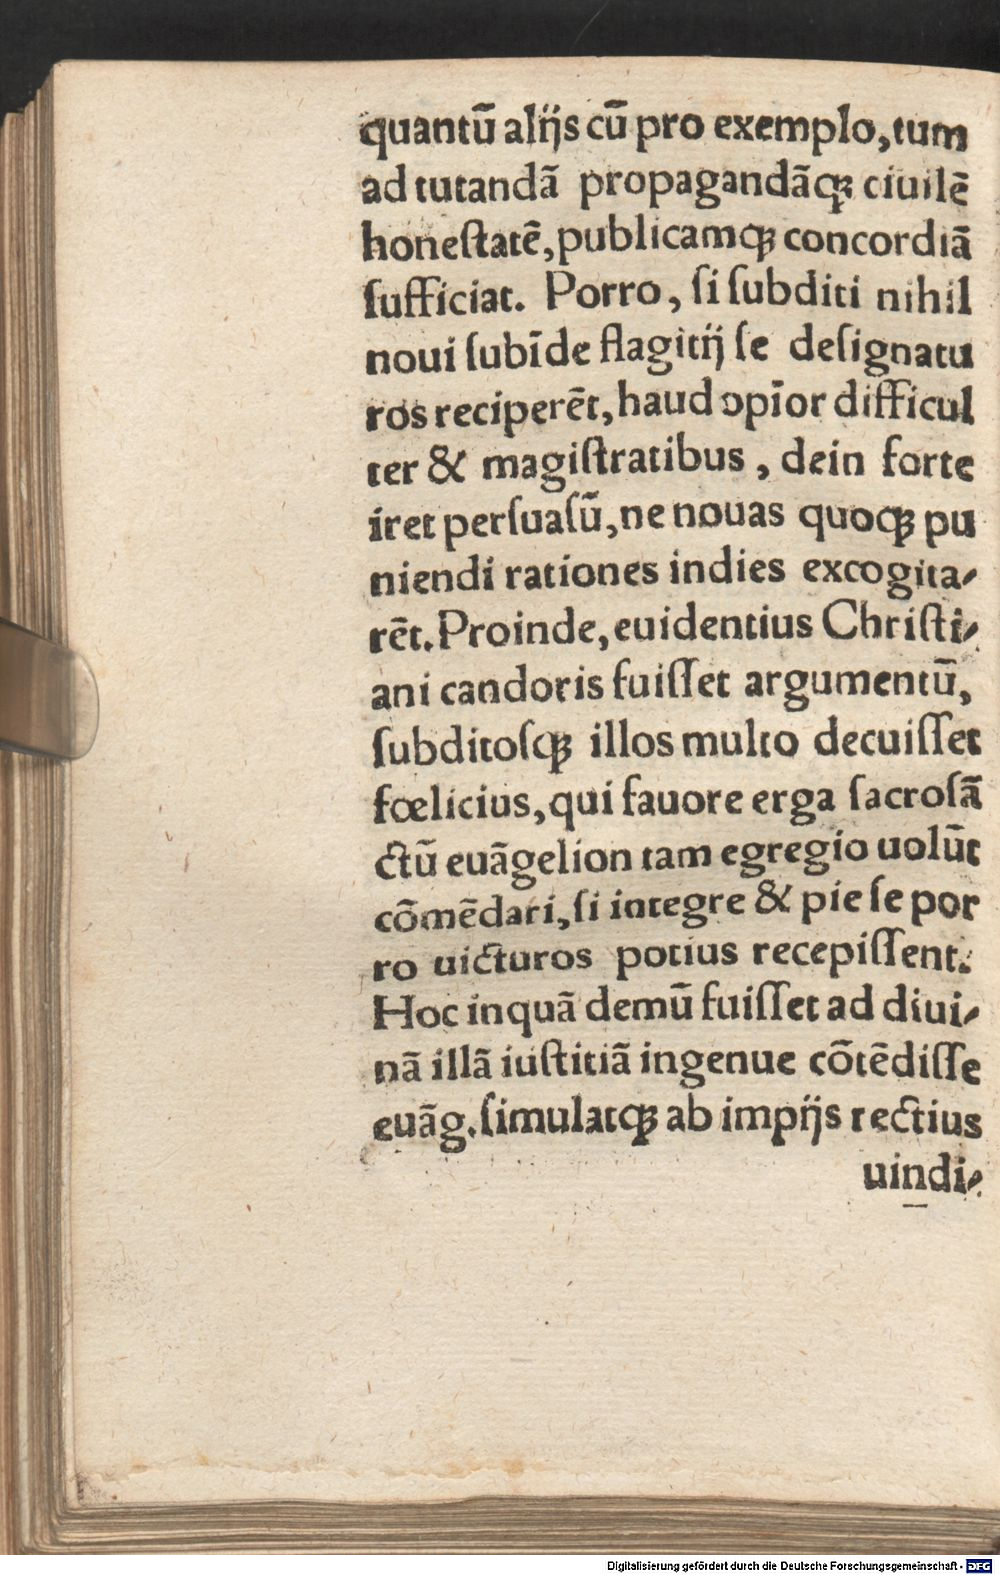 quantū alijs cū pro exemplo, tum
ad tutandā propagandāqꝫ ciuilē
honeſtatē, publicamqꝫ concordiā
ſufficiat. Porro, ſi ſubditi nihil
noui ſubīde flagitij ſe deſignatu
ros reciperēt, haud opīor difficul
ter & magiſtratibus, dein forte
iret perſuaſū, ne nouas quoqꝫ pu
niendi rationes indies excogita-
rēt. Proinde, euidentius Chriſti-
ani candoris fuiſſet argumentū,
ſubditoſqꝫ illos multo decuiſſet
fœlicius, qui fauore erga ſacroſā
ctū euāgelion tam egregio uolūt
cōmēdari, ſi integre & pie ſe por
ro uicturos potius recepiſſent.
Hoc inquā demū fuiſſet ad diui-
nā illā iuſtitiā ingenue cōtēdiſſe
euāg. ſimulatqꝫ ab impijs rectius
uindi-
Digitalisierung gefördert durch die Deutsche Forschungsgemeinschaft - DFG